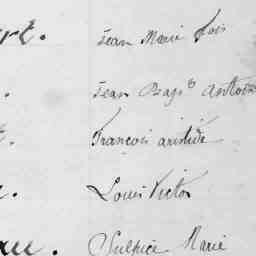 Jean Marie fois
Jean Bapte Antoine
François aristide
Louis Victor
Sulpice Marie